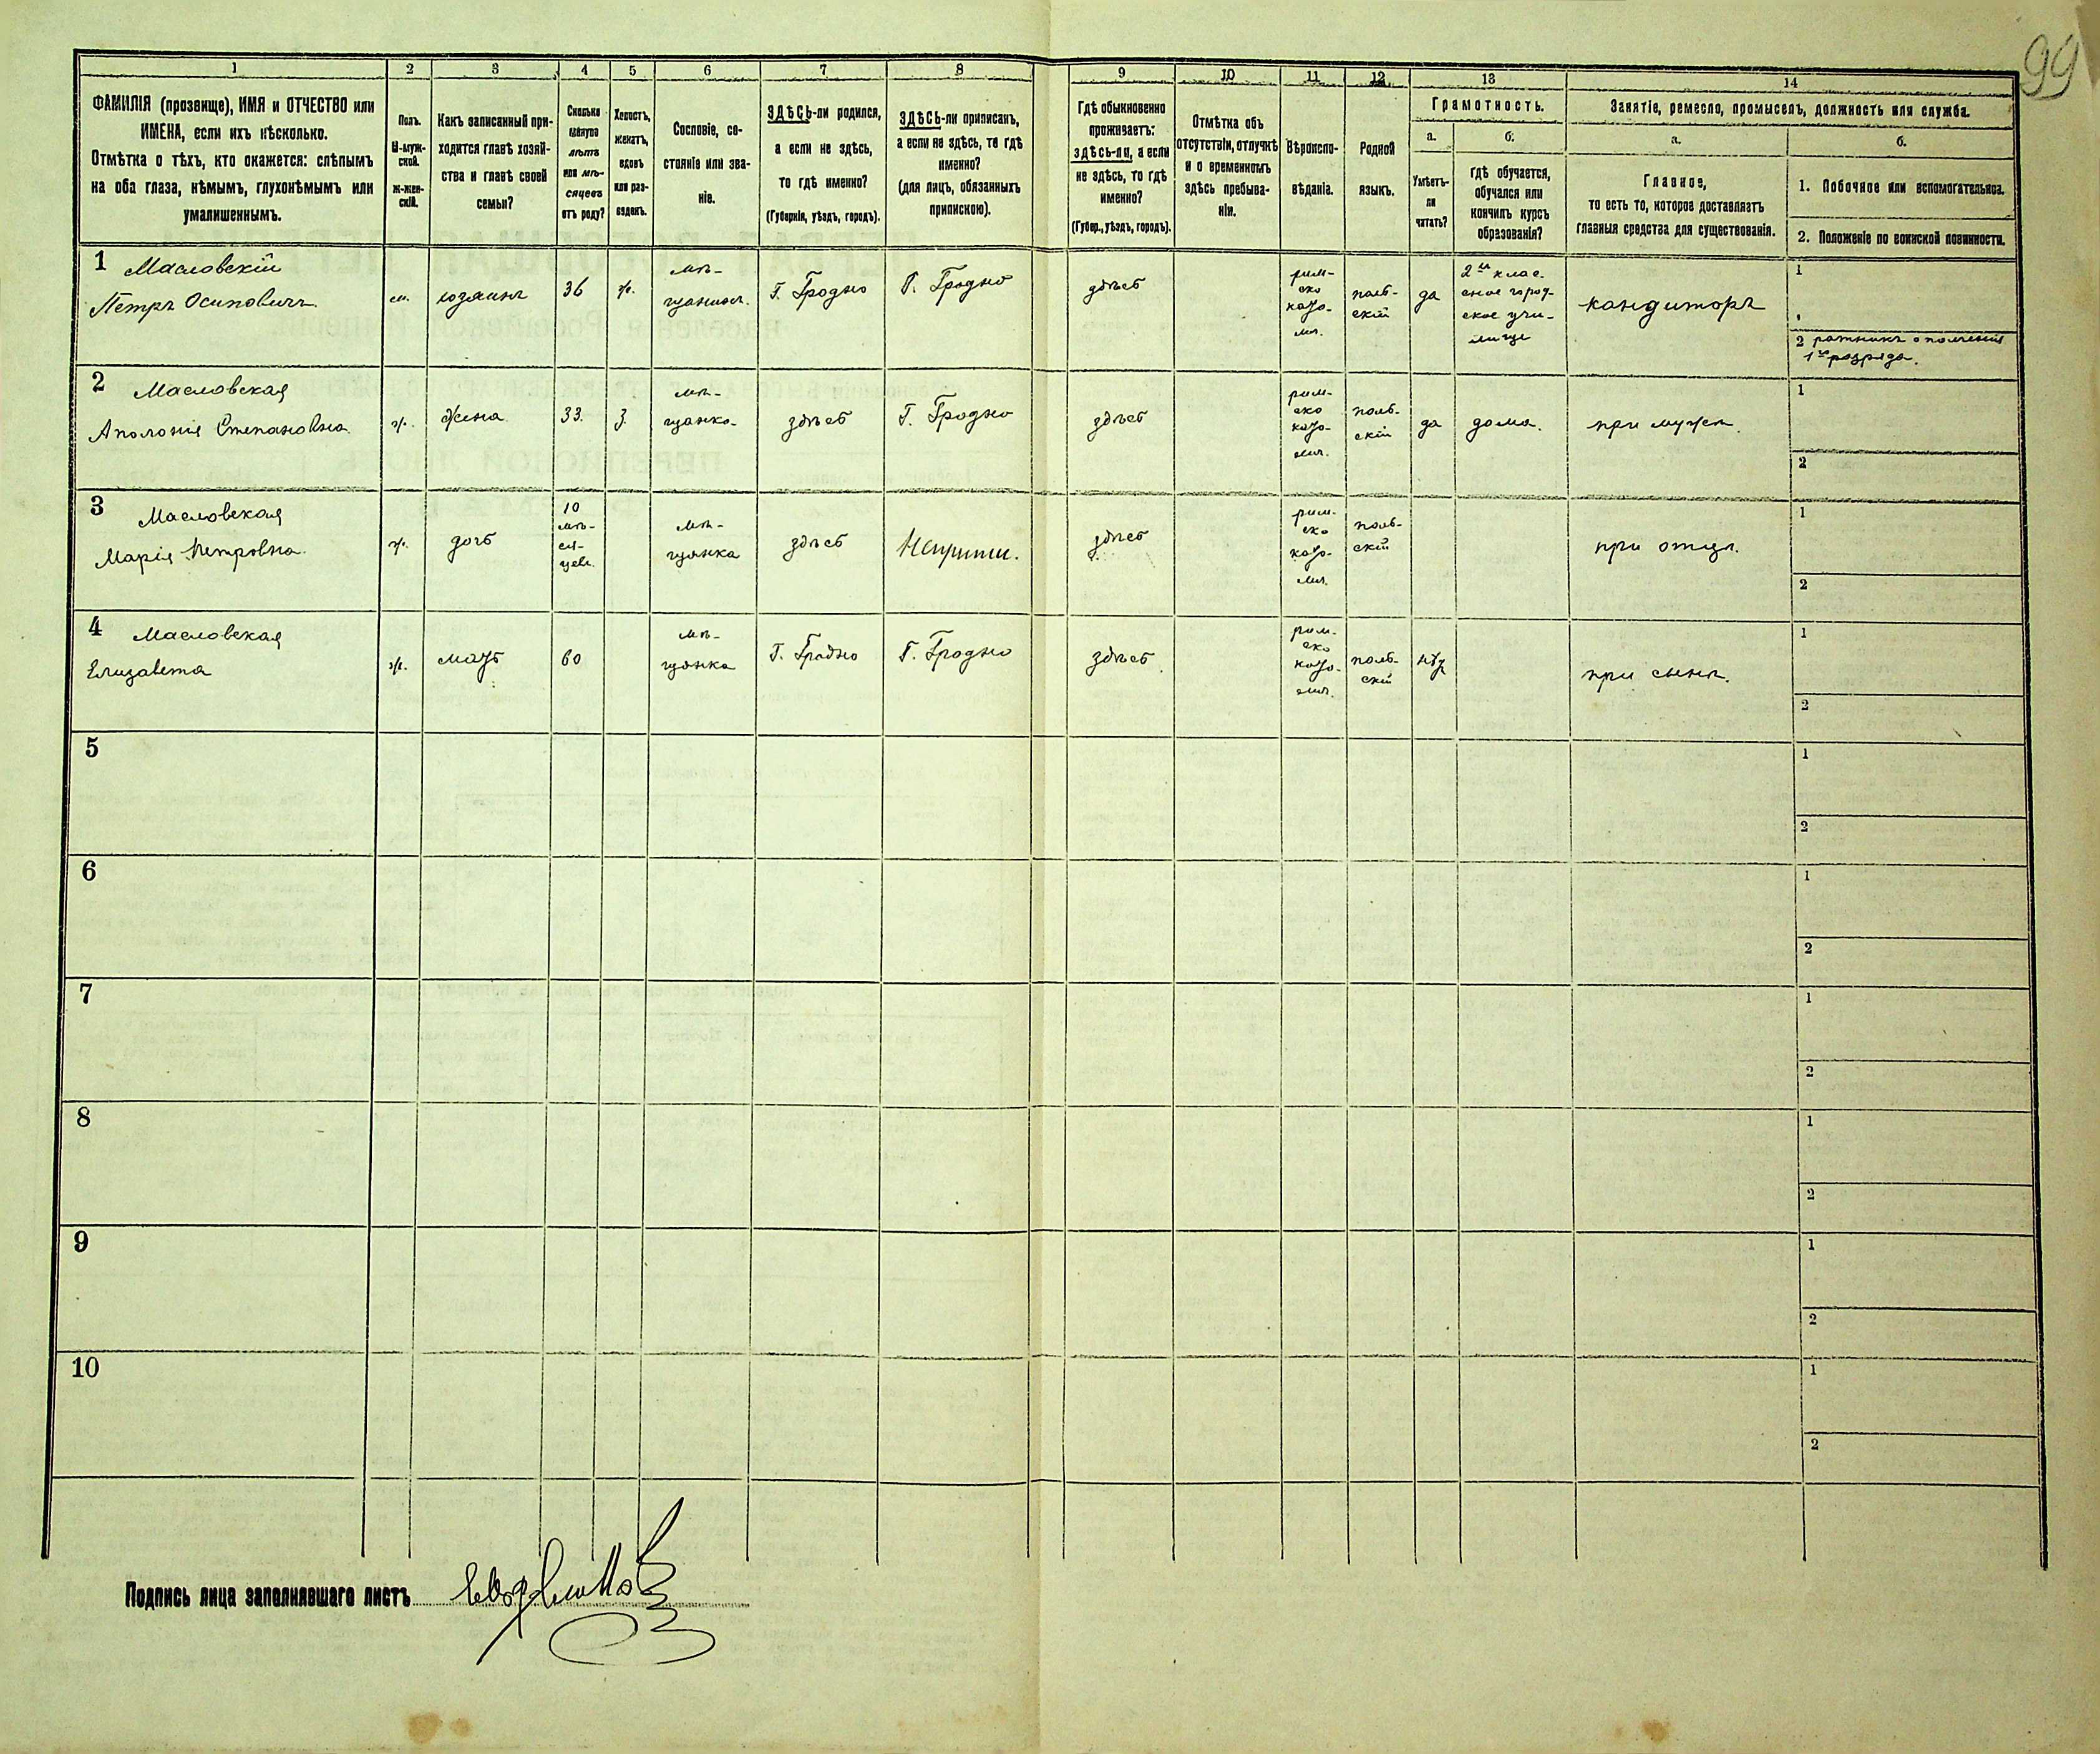 99
1
2
3
4
5
6
7
8
9
10
11
12
13
14
ФАМИЛІЯ (прозвище), ИМЯ и ОТЧЕСТВО или
ИМЕНА, если ихъ нѣсколько.
Отмѣтка о тѣхъ, кто окажется: слѣпымъ
на оба глаза, нѣмымъ, глухонѣмымъ или
умалишеннымъ.
Полъ.
М-муж-
ской.
Ж-жен-
скій.
Какъ записанный при-
ходится главѣ хозяй-
ства и главѣ своей
семьи?
Сколько
минуло
лѣтъ
или мѣ-
сяцевъ
отъ роду?
Холостъ,
женатъ,
вдовъ
или раз-
веденъ.
Сословіе, со-
стояніе или зва-
ніе.
ЗДѢСЬ-ли родился,
а если не здѣсь,
то гдѣ именно?
(Губернія, уѣздъ, городъ).
ЗДѢСЬ-ли приписанъ,
а если не здѣсь, то гдѣ
именно?
(для лицъ, обязанныхъ
припискою).
Гдѣ обыкновенно
проживаетъ:
здѣсь-ли, а если
не здѣсь, то гдѣ
именно?
(Губер., уѣздъ, городъ).
Отмѣтка объ
отсутствіи, отлучкѣ
и о временномъ
здѣсь пребыва-
ніи.
Вѣроиспо-
вѣданіе.
Родной
языкъ.
Грамотность.
а.
Умѣетъ-
ли
читать?
б.
Гдѣ обучается,
обучался или
кончилъ курсъ
образованія?
Занятіе, ремесло, промыселъ, должность или служба.
а.
Главное,
то есть то, которое доставляетъ
главныя средства для существованія.
б.
1. Побочное или вспомогательное.
2. Положеніе по воинской повинности.
1 Масловскій
Петръ Осиповичъ
м.
хозяинъ
36
ж.
мѣ-
щанинъ
Г. Гродно
Г. Гродно
здѣсь
рим-
ско
като-
лич.
поль-
скій
да
2хъ клас.
сное город-
ское учи-
лище
кандиторъ
1
2 ратникъ ополченія
1го разряда.
2 Масловская
Аполонія Степановна
ж.
жена
33.
з.
мѣ-
щанка
здѣсь
Г. Гродно
здѣсь
рим-
ско
като-
лич.
поль-
скій
да
дома.
при мужѣ.
1
2
3 Масловская
Марія Петровна
ж.
дочь
10
мѣ-
ся-
цевъ.
мѣ-
щанка
здѣсь
Неприпи.
здѣсь
рим-
ско
като-
лич.
поль-
скій
при отцѣ.
1
2
4 Масловская
Елизавета
ж.
мать
60
мѣ-
щанка
Г. Гродно
Г. Гродно
здѣсь
рим-
ско
като-
лич.
поль-
скій
нѣт
при сынѣ.
1
2
5
1
2
6
1
2
7
1
2
8
1
2
9
1
2
10
1
2
Подпись лица заполнявшаго листъ